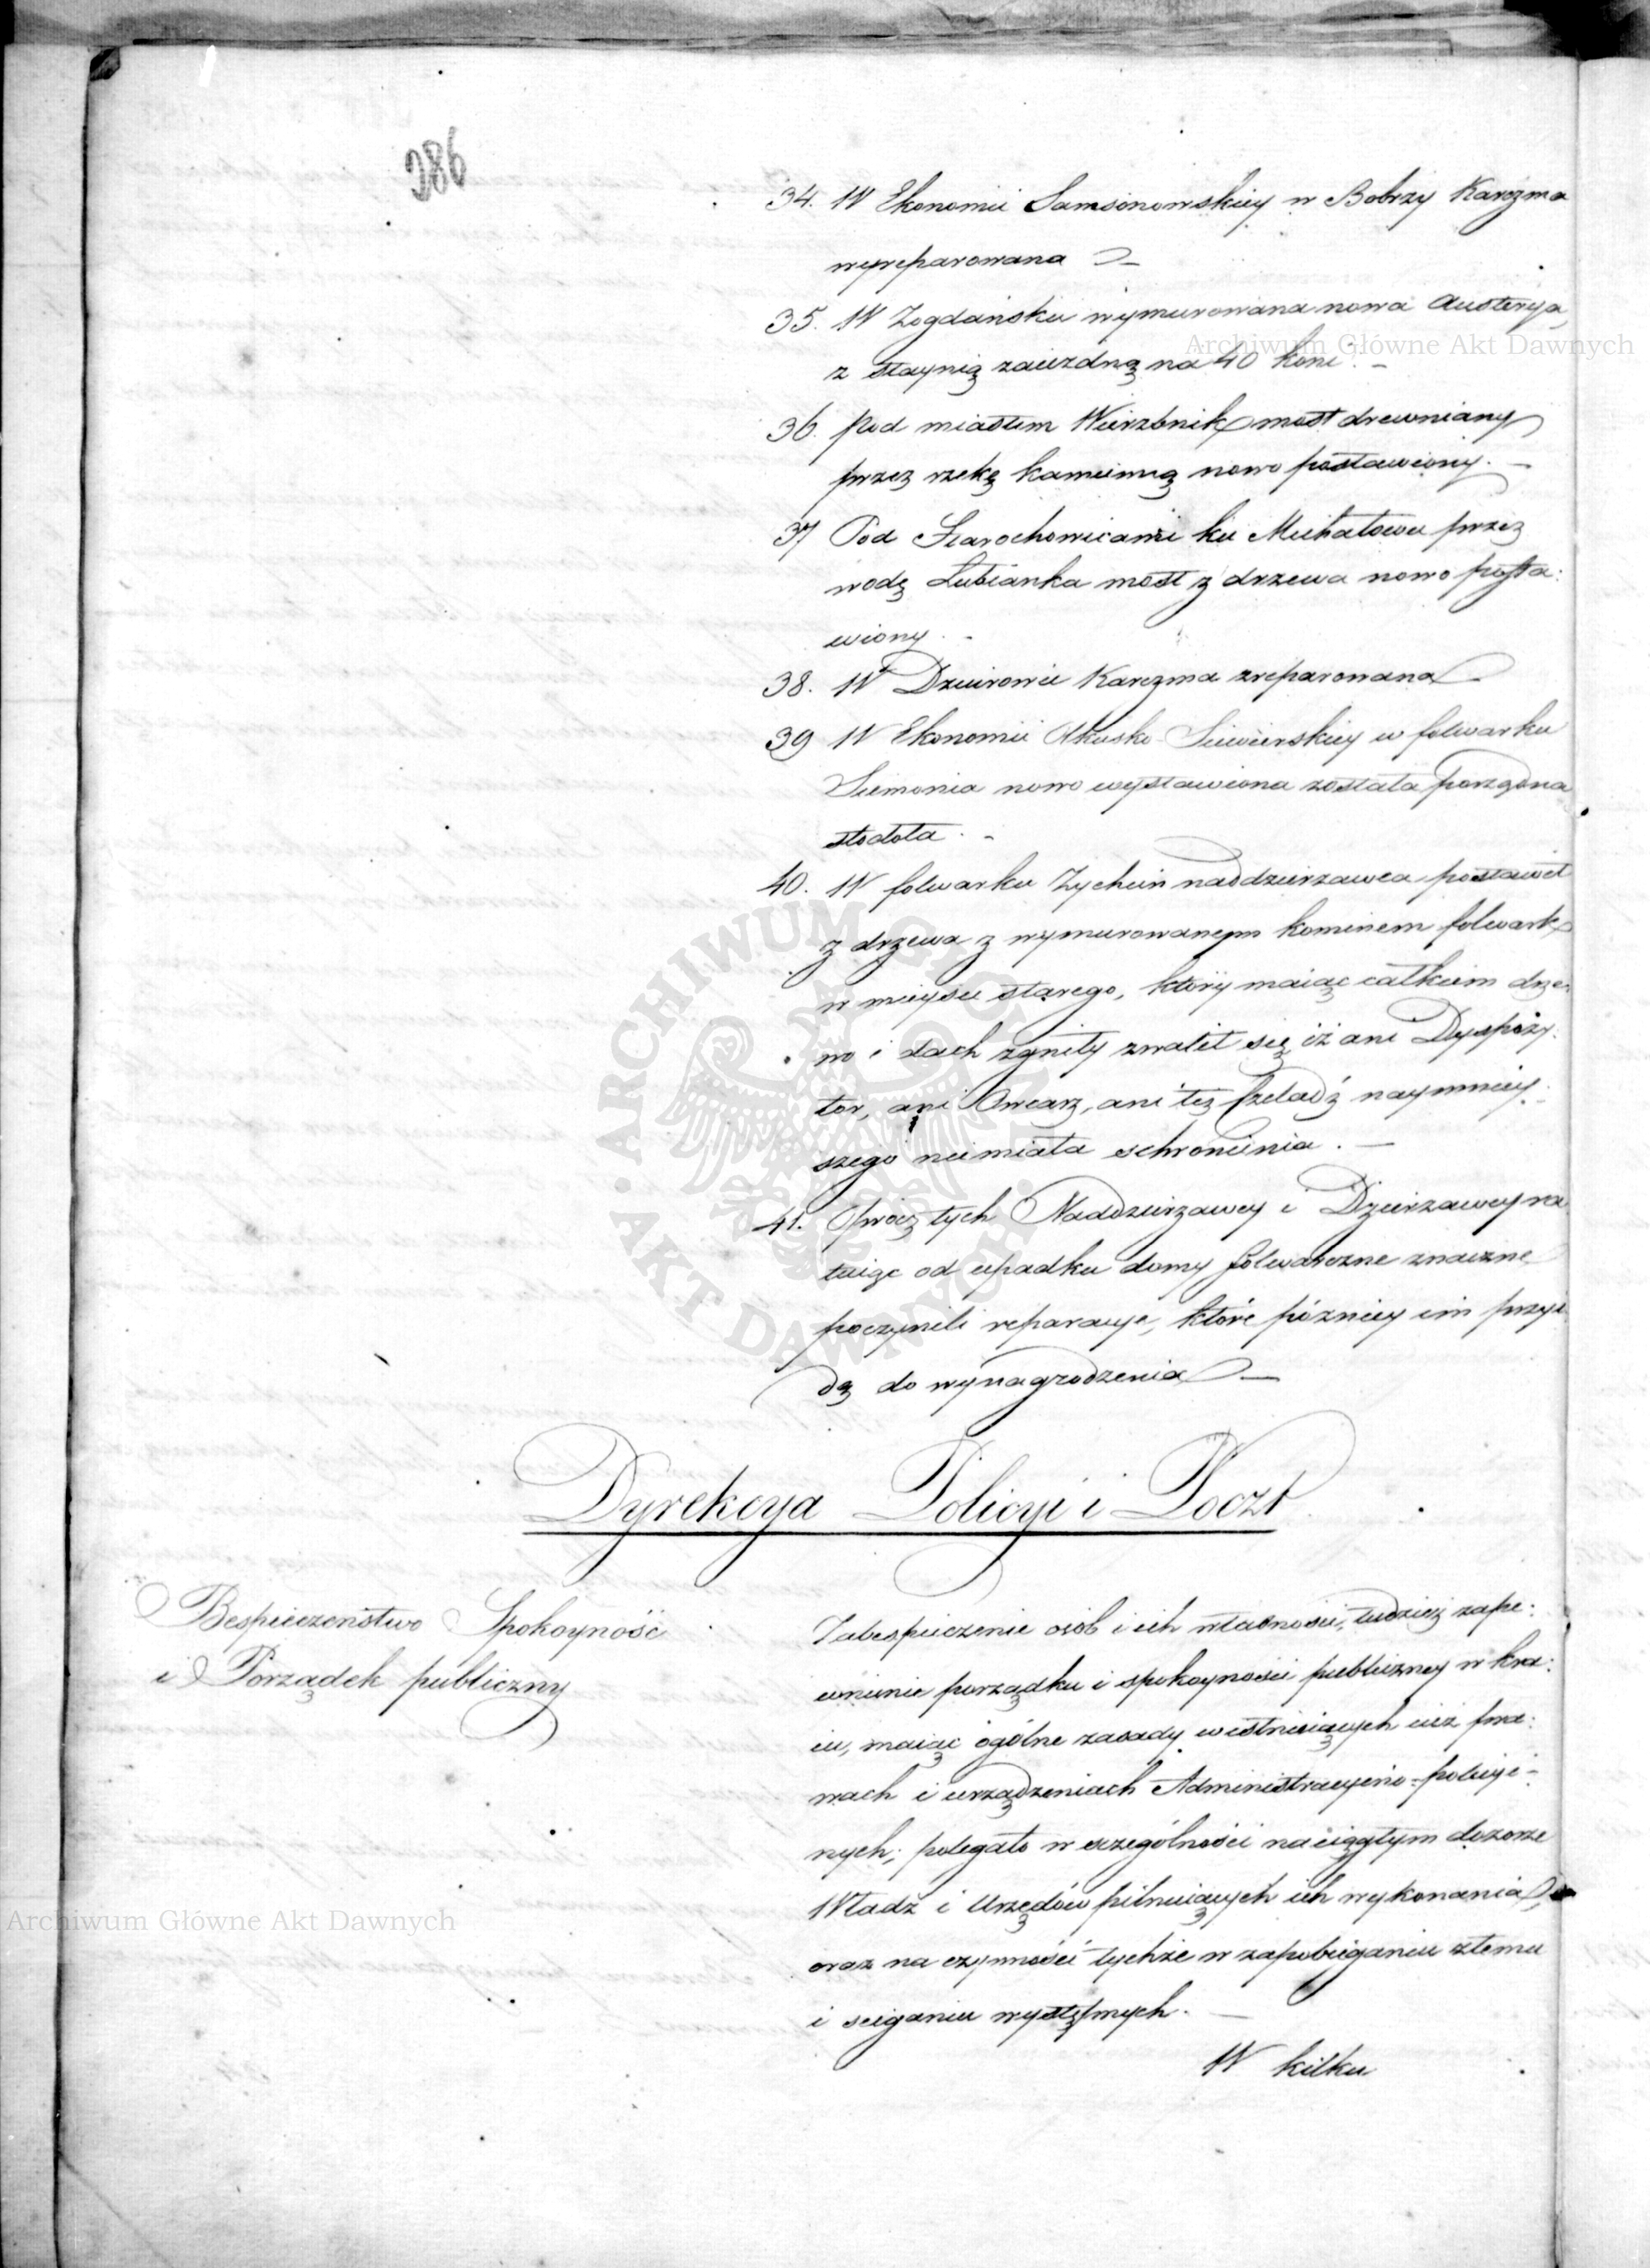 286
34. W Ekonomii Samsonowskiey w Bobrzy Karczma
wyreparowana
35. W Zagdańsku wymurowana nowa Austerya,
z staynią zaiezdną na 40 koni. –
36. Pod miastem Wierzbnik most drewniany
przez rzekę kamienną nowo postawiony. –
37 Pod Starochowicami ku Michałowu przez
wodę Lubianka most z drzewa nowo posta:
wiony. –
38. W Dziurowie Karczma zreparowana
39 W Ekonomii Olkusko Siewierskiey w folwarku
Siemonia nowo wystawiona została porządna
stodoła. –
40. W folwarku Zychcin naddzierzawca postawił
z drzewa z wymurowanym kominem folwark
w mieysce starego, który maiąc całkiem drze:
wo i dach zgniły zwalił się iż ani Dyspozy:
tor, ani Owczarz, ani też Czeladź naymniey:
szego niemiała schronienia. –
41. Oprócz tych Naddzierzawcy i Dzierzawcy ra
tuiąc od upadku domy folwarczne znaczne
poczynili reparacye, które późniey im przyi
dą do wynagrodzenia –
Dyrekcya Policyi i Poczt
Bespieczeństwo Spokoyność
i Porządek publiczny
Zabespieczenie osób i ich własności, tudzież zape:
wnienie porządku i spokoyności publiczney w kra:
iu, maiąc ogólne zasady w istnieiących iuż pra:
wach i urządzeniach Administracyino-policyi-
nych; polegało w szczególności na ciągłym dozorze
Władz i Urzędów pilnuiących ich wykonania,
oraz na czynności tychże w zapobieganiu złemu
i sciganiu występnych. –
W kilku
Archiwum Główne Akt Dawnych
Archiwum Główne Akt Dawnych
ARCHIWUM GŁÓWNE AKT DAWNYCH